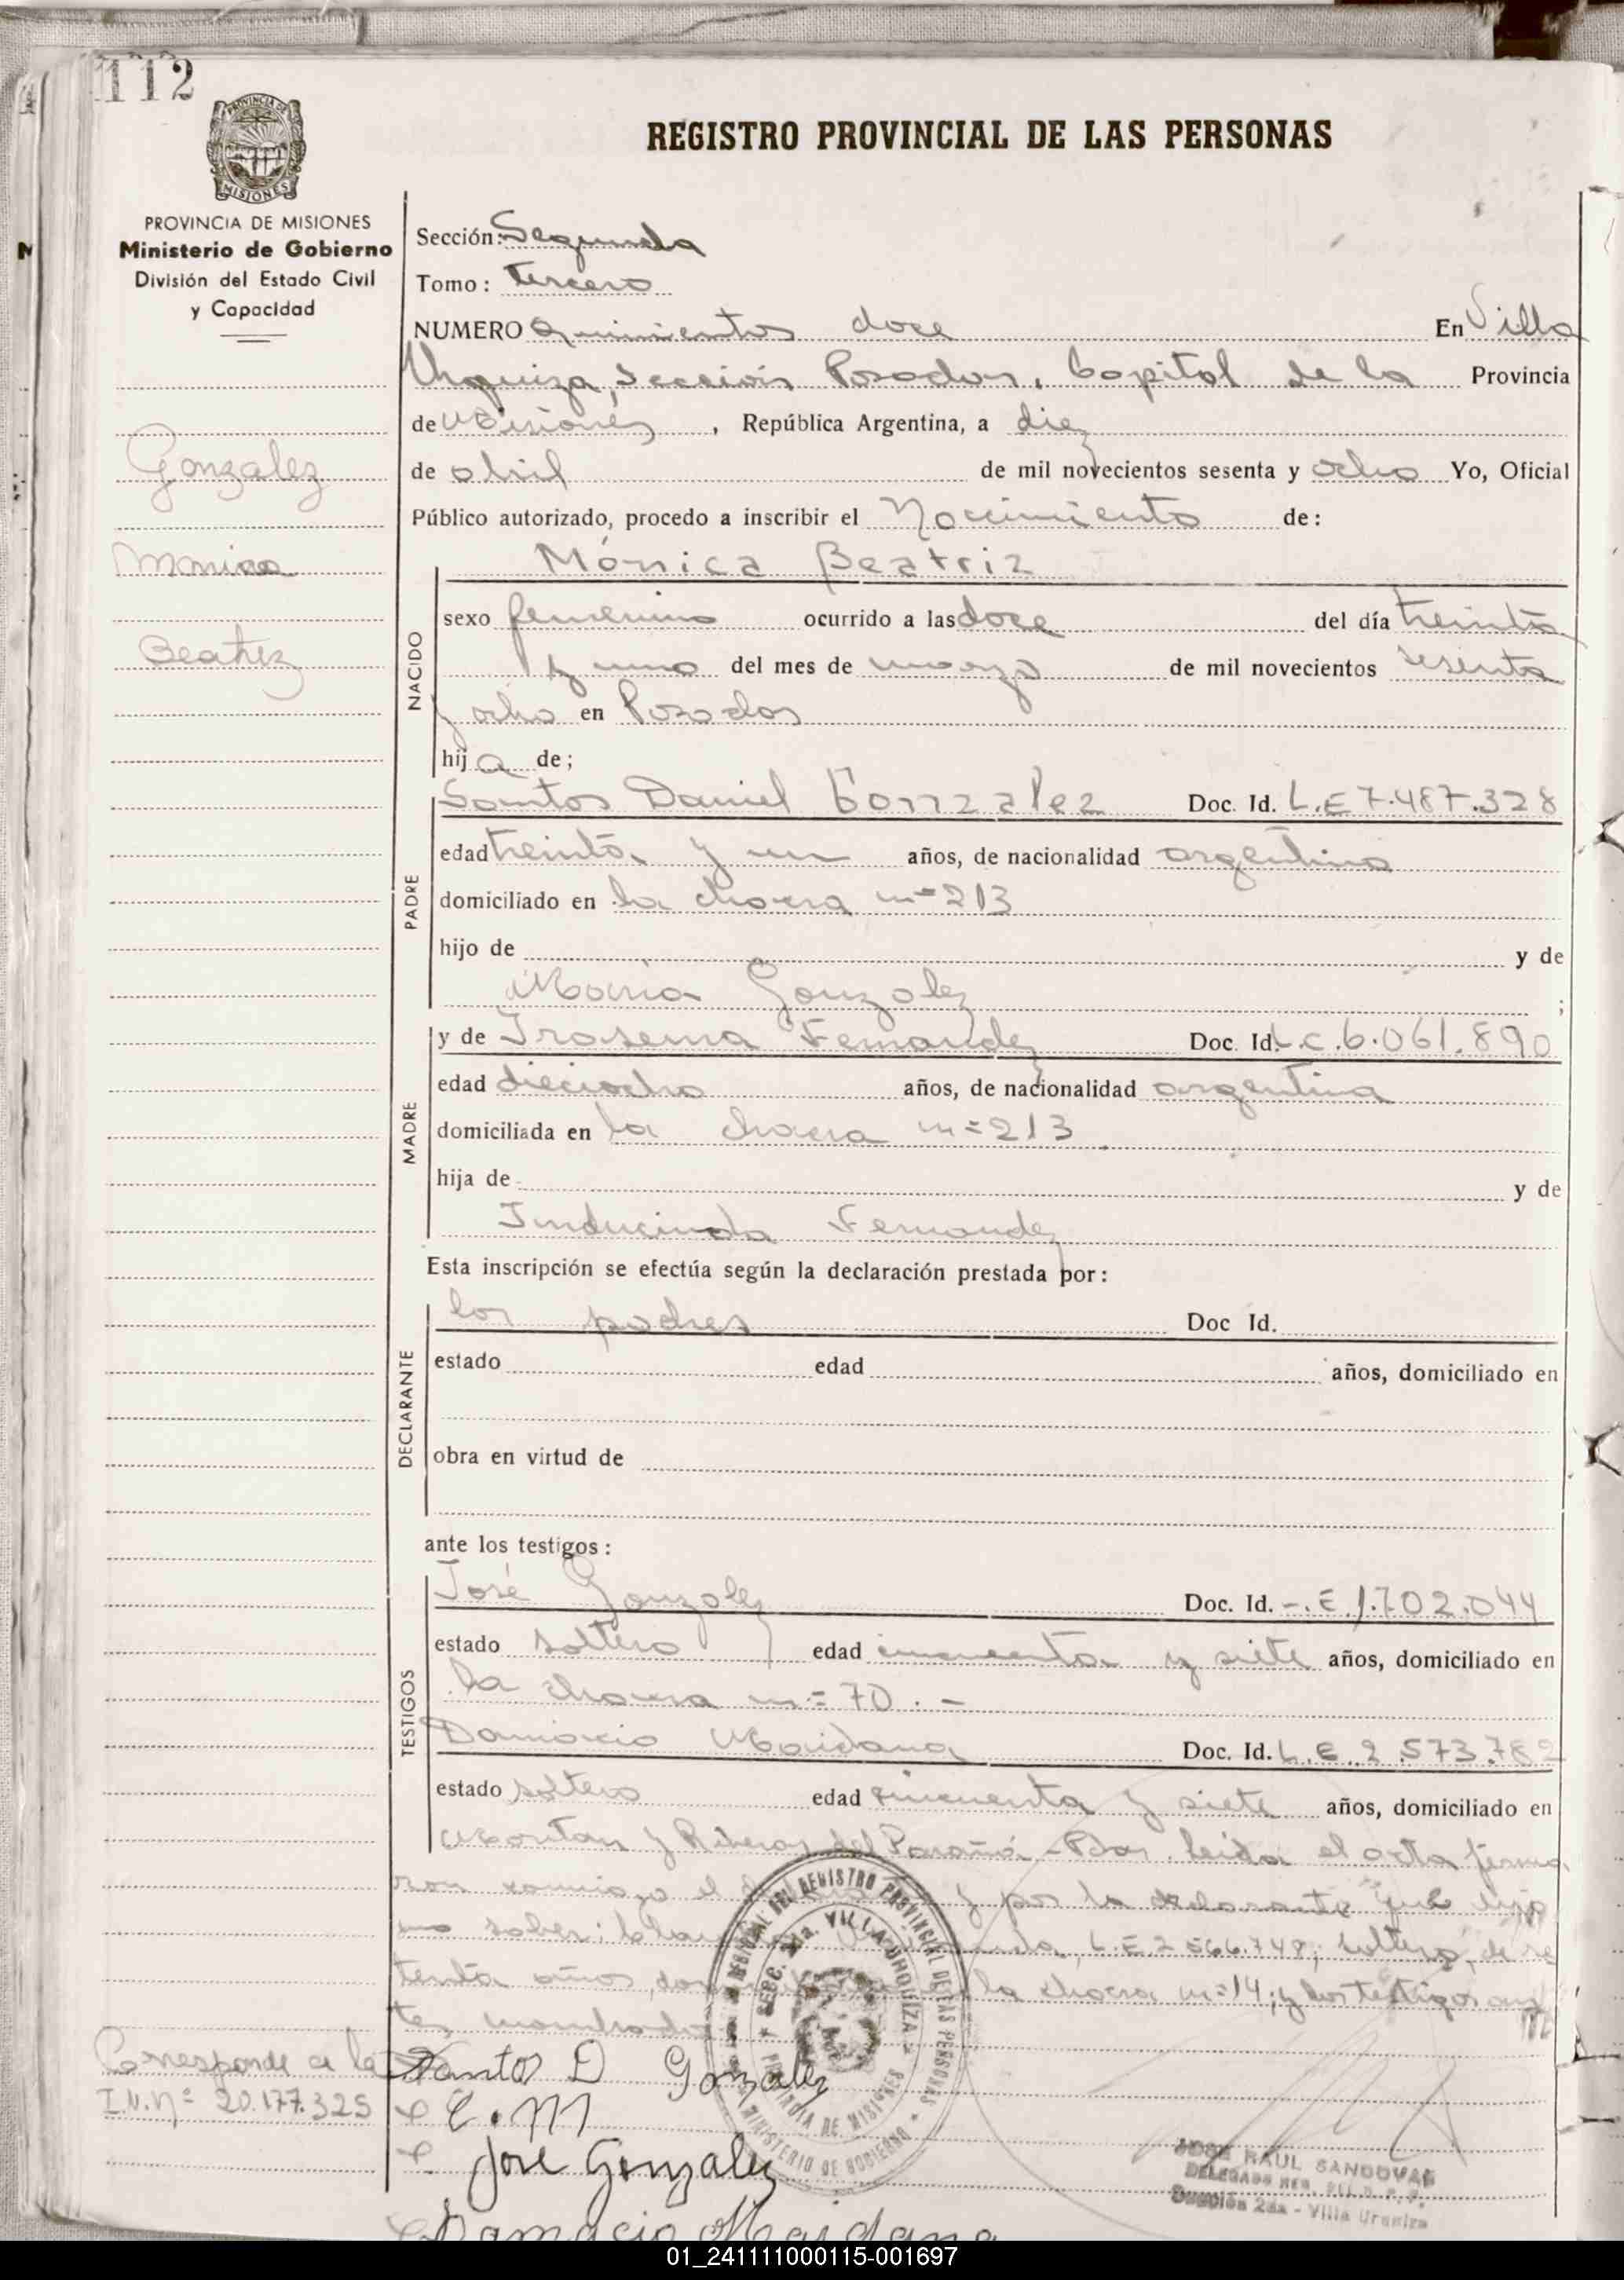 112
REGISTRO PROVINCIAL DE LAS PERSONAS
PROVINCIA DE MISIONES
Ministerio de Gobierno
División del Estado Civil
y Capacidad
Gonzalez
Monica
Beatriz
Sección: Segunda
Tomo: tercero
NUMERO Quinientos doce En Villa
Urquiza, Sección Posadas, Capital de la Provincia
de Misiones, República Argentina, a diez
de abril de mil novecientos sesenta y ocho Yo, Oficial
Público autorizado, procedo a inscribir el Nacimiento de:
NACIDO
Mónica Beatriz
sexo femenino ocurrido a las doce del día treinta
y uno del mes de marzo de mil novecientos sesenta
y ocho en Posadas
hija de;
PADRE
Santos Daniel Gonzalez Doc. Id. L.E 7.487.328
edad treinta y un años, de nacionalidad argentina
domiciliado en la chacra n=213
hijo de y de
Maria Gonzalez ;
MADRE
y de Irosema Fernandez Doc. Id. L.C.6.061.890
edad dieciocho años, de nacionalidad argentina
domiciliada en la chacra n=213.
hija de y de
Fernandez
Esta inscripción se efectúa según la declaración prestada por:
DECLARANTE
los padres Doc Id.
estado edad años, domiciliado en
obra en virtud de
ante los testigos:
TESTIGOS
José Gonzalez Doc. Id. -.E.1.702.044
estado soltero edad cincuenta y siete años, domiciliado en
la chacra n=70.-
Damacio Maidana Doc. Id. L.E.2.573.782
estado soltero edad cincuenta y siete años, domiciliado en
y Riberas del Paraná - leida el acta firma
ron conmigo el y por la declarante que dijo
no saber: L.E 2566.748, soltero, de se
tenta años, la chacra n=14; y los testigos an
tes nombrados
Corresponde a la
I.N.Nº 20.177.325
Santos D Gonzalez
E. M
José Gonzalez
Damacio Maidana
REGISTRO PROVINCIAL DE LAS PERSONAS
SECC. 2da. VILLA URQUIZA
PROVINCIA DE MISIONES
MINISTERIO DE GOBIERNO
JOSE RAUL SANDOVAL
DELEGADO
Sección 2da - Villa Urquiza
01_241111000115-001697